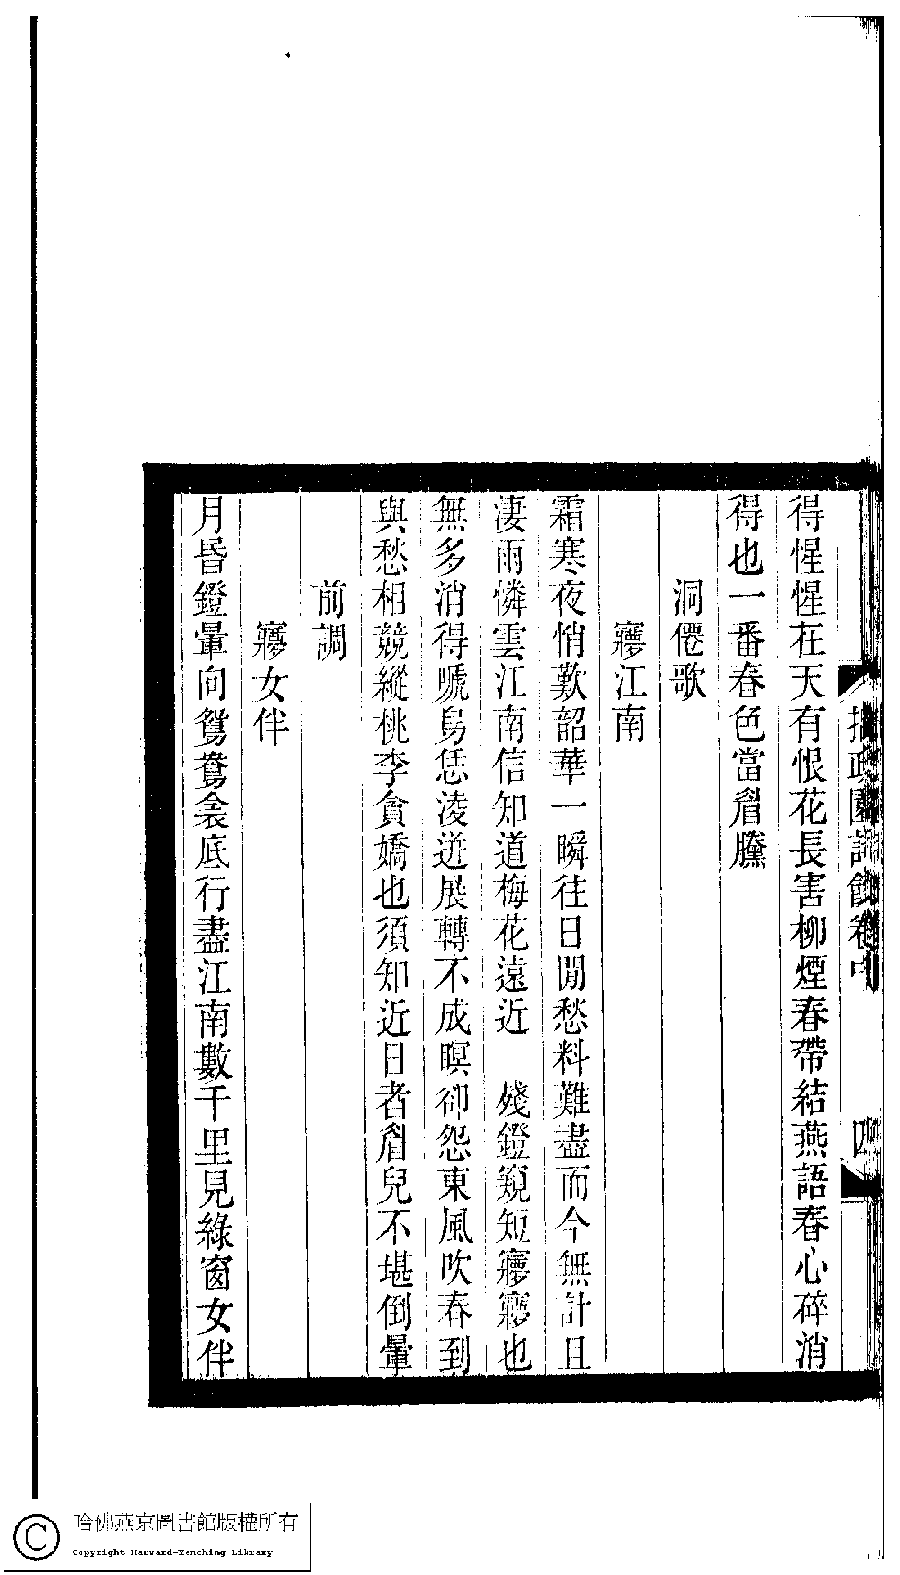 拙政園詩餘卷中 四
得惺惺在天有恨花長害柳煙春帶結燕語春心碎消
得也一番春色當眉騰
洞僊歌
㝱江南
霜寒夜悄歎韶華一瞬往日閒愁料難盡而今無計且
淒雨憐雲江南信知道梅花遠近 殘鐙窺短㝱㝱也
無多消得嗁舄恁淩迸展轉不成瞑卻怨東風吹春到
與愁相競縱桃李貪嬌也須知近日者眉兒不堪倒暈
前調
㝱女伴
月昏鐙暈向鴛鴦衾底行盡江南數千里見綠窗女伴
哈佛燕京圖書館版權所有
Copyright Harvard-Yenching Library